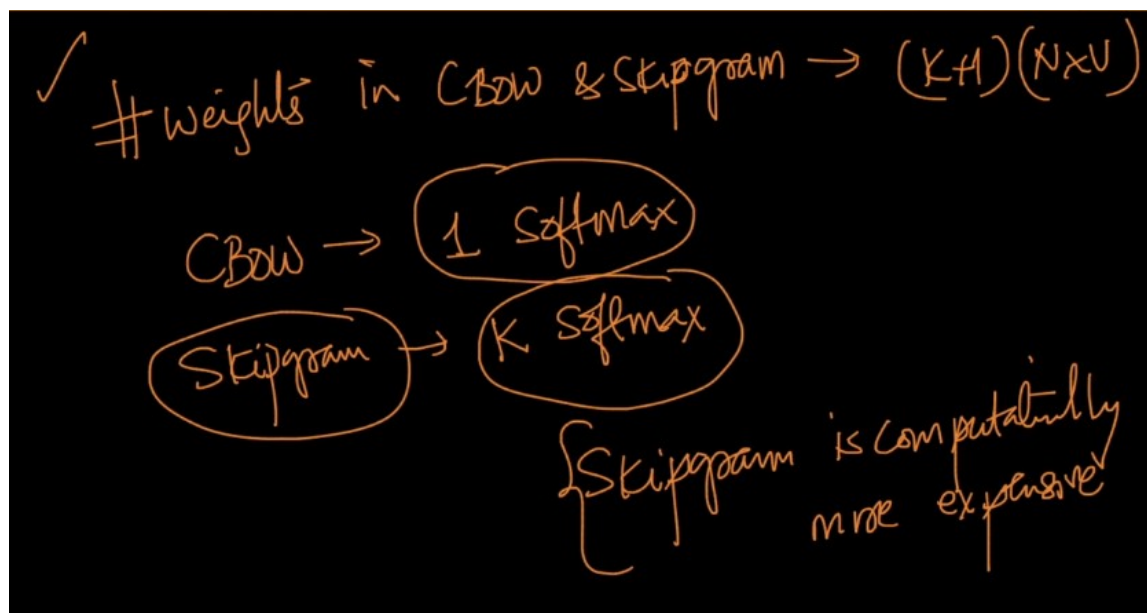 ✓ # weights in CBOW & Skipgram → (K+1)(N×V)
CBOW → 1 Softmax
Skipgram → K Softmax
{Skipgram is computatinully
more expensive